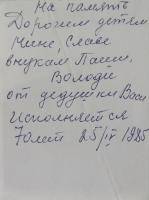 На память
Дорогим детям
Нине, Славе
внукам Паши,
Володи
от дедушки Васи
Исполняется
70 лет 25/IV 1985